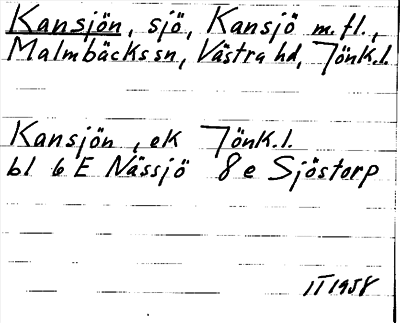 Kansjön, sjö, Kansjö m.fl.,
Malmbäcks sn, Västra hd, Jönk.l.
Kansjön, ek Jönk.l.
bl 6 E Nässjö 8 e Sjöstorp
II 1958